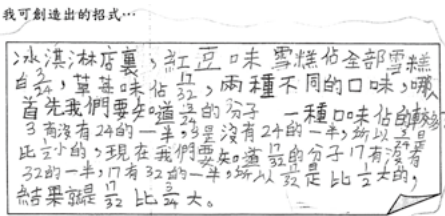 我可創造出的招式…
冰淇淋店裏,紅豆口味雪糕佔全部雪糕
白3/24,草莓味佔17/32,兩種不同的口味,哪
一種口味佔的較
首先我們要知道3/24的分子
3有沒有24的一半,3是沒有24的一半,所以3/24是
比1/2小的,現在我們要知道17/32的分子17有沒有
32的一半,17有32的一半,所以17/32是比1/2大的,
結果就是17/32比3/24大。